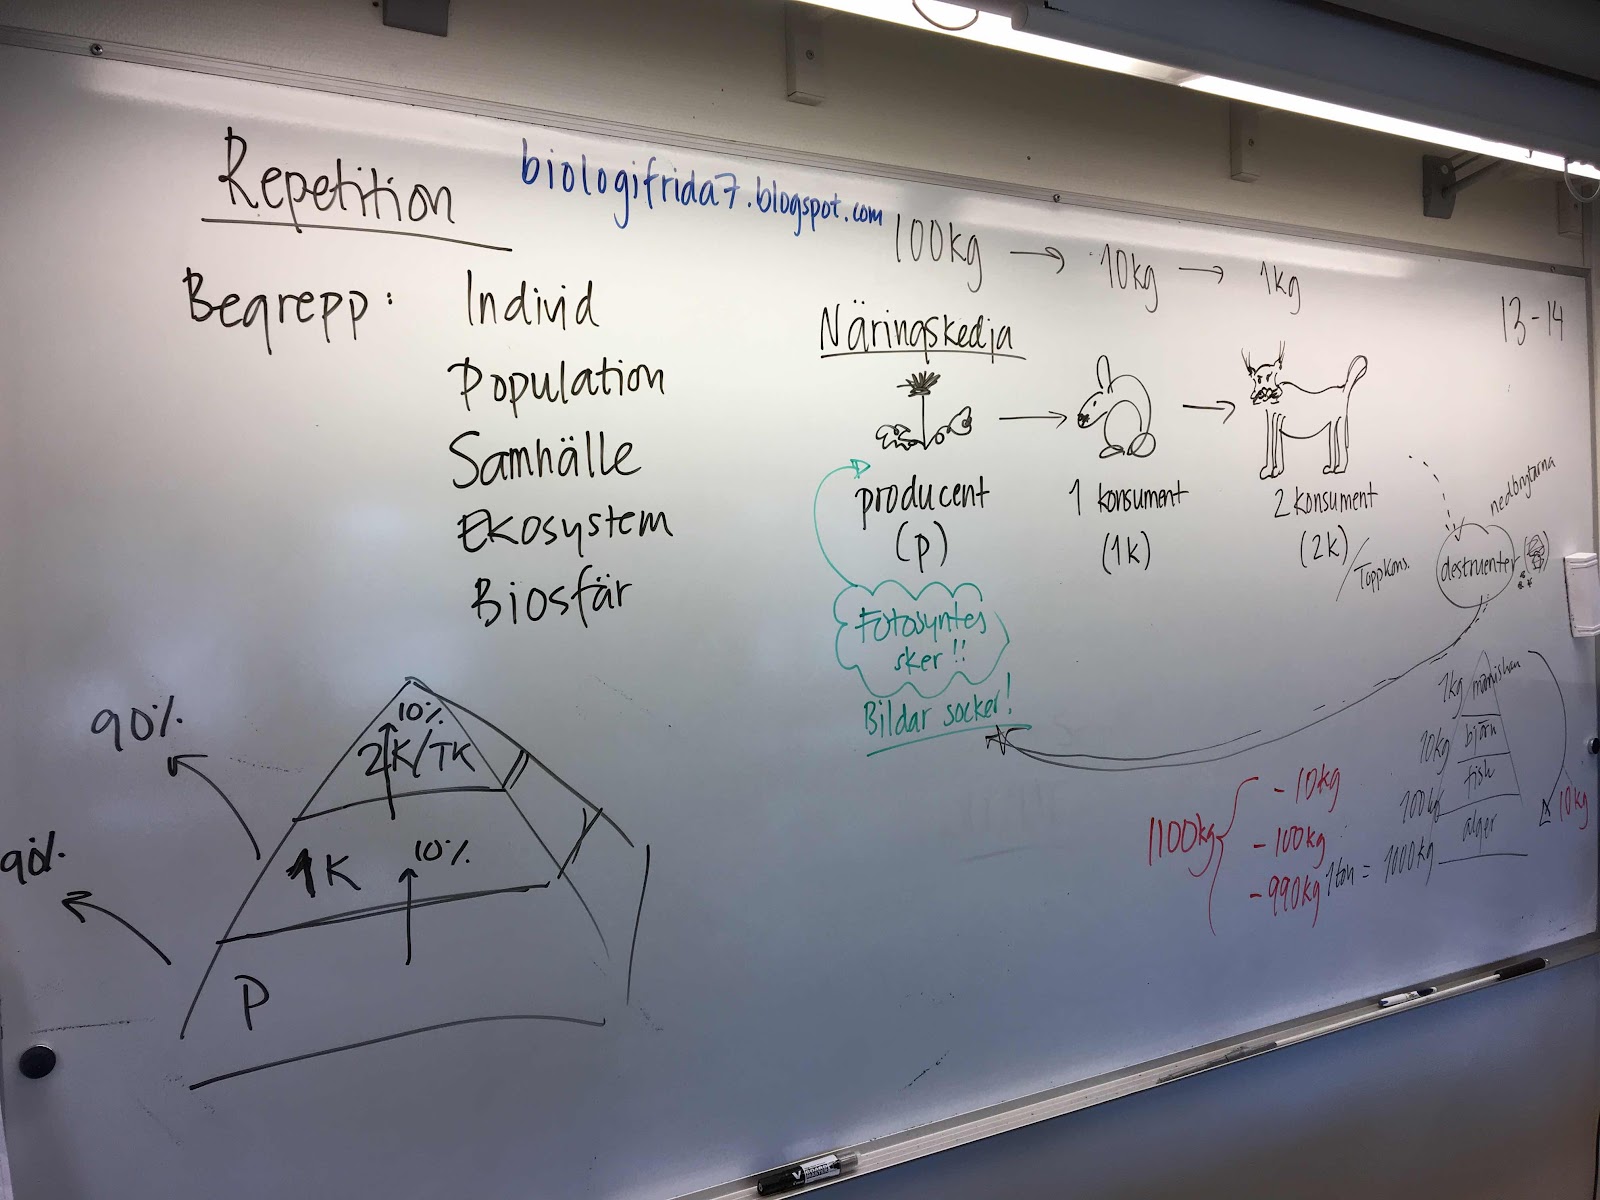 Repetition
biologifrida7.blogspot.com
Begrepp:
Individ
Population
Samhälle
Ekosystem
Biosfär
100kg → 10kg → 1kg
13-14
Näringskedja
producent
(p)
1 konsument
(1k)
2 konsument
(2k) / Toppkons.
nedbrytarna
destruenter
Fotosyntes
sker!!
Bildar socker!
90%
90%
10%
2K/TK
10%
1K
P
1kg människan
10kg björn
100kg fisk
1ton = 1000kg alger
10kg
1100kg
-10kg
-100kg
-990kg